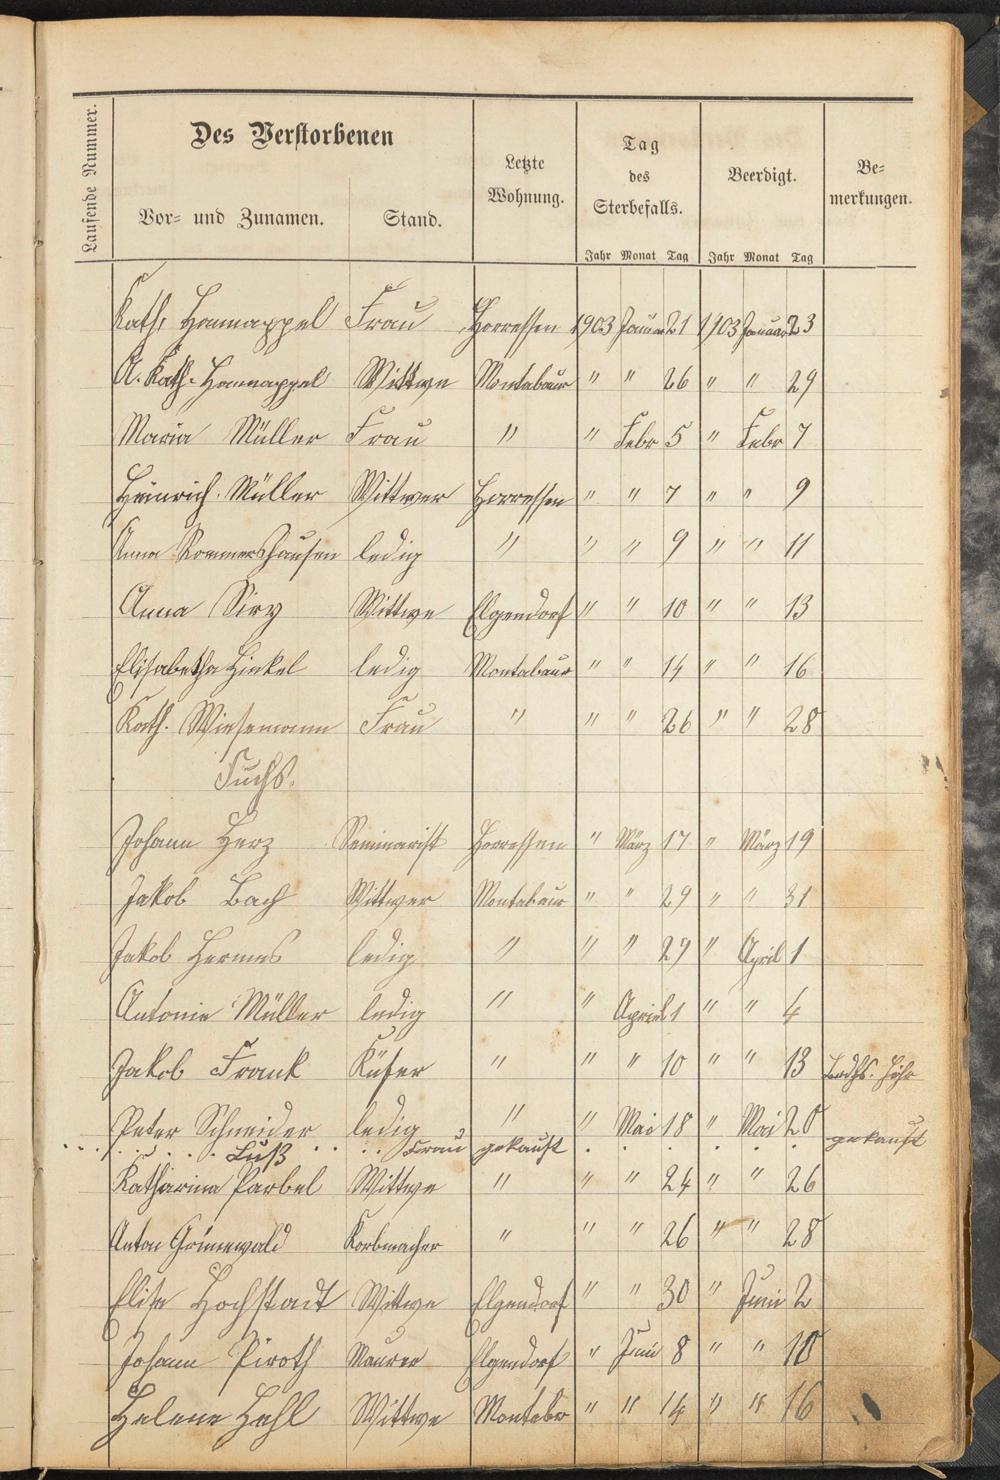 Laufende Nummer.
Des Verstorbenen
Vor- und Zunamen. Stand.
Letzte Wohnung.
Tag des Sterbefalls.
Beerdigt.
Bemerkungen.
Jahr Monat Tag Jahr Monat Tag
Kath. Hannappel Frau Horressen 1903 Januar 21 1903 Januar 23
A. Kath. Hannappel Wittwe Montabaur " " 26 " " 29
Maria Müller Frau " " Febr 5 " Febr 7
Heinrich Müller Wittwer Horressen " " 7 " " 9
Anna Rommershausen ledig " " " 9 " " 11
Anna Siry Wittwe Elgendorf " " 10 " " 13
Elisabetha Hinkel ledig Montabaur " " 14 " " 16
Kath. Wiesemann Frau " " " 26 " " 28
Fuchs.
Johann Herz Seminarist Horressen " März 17 " März 19
Jakob Bach Wittwer Montabaur " " 29 " " 31
Jakob Hermes ledig " " " 29 " April 1
Antonie Müller ledig " " April 1 " " 4
Jakob Frank Küfer " " " 10 " " 13
Peter Schneider ledig " " Mai 18 " Mai 20
Luß Frau gekauft gekauft
Katharina Parbel Wittwe " " " 24 " " 26
Anton Grünewald Korbmacher " " " 26 " " 28
Elise Hochstadt Wittwe Elgendorf " " 30 " Juni 2
Johann Piroth Maurer Elgendorf " Juni 8 " " 10
Helene Hehl Wittwe Montabr " " 14 " " 16